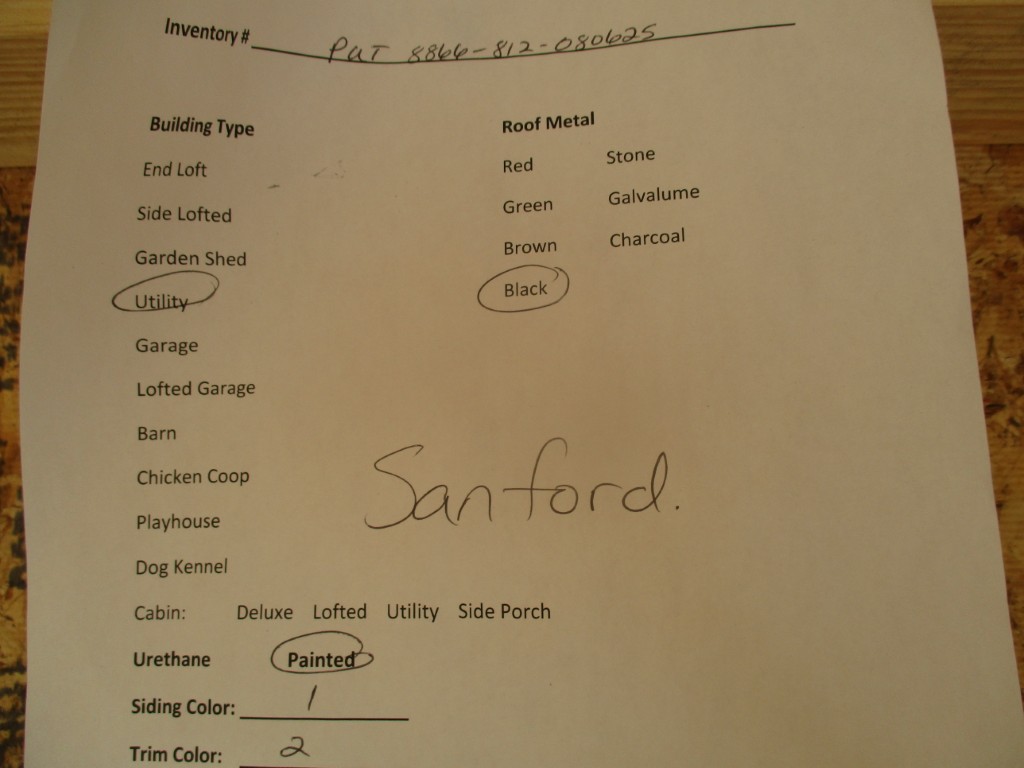 Inventory # PUT 8866-812-080625
Building Type
End Loft
Side Lofted
Garden Shed
Utility
Garage
Lofted Garage
Barn
Chicken Coop
Playhouse
Dog Kennel
Roof Metal
Red Stone
Green Galvalume
Brown Charcoal
Black
Sanford.
Cabin: Deluxe Lofted Utility Side Porch
Urethane Painted
Siding Color: 1
Trim Color: 2